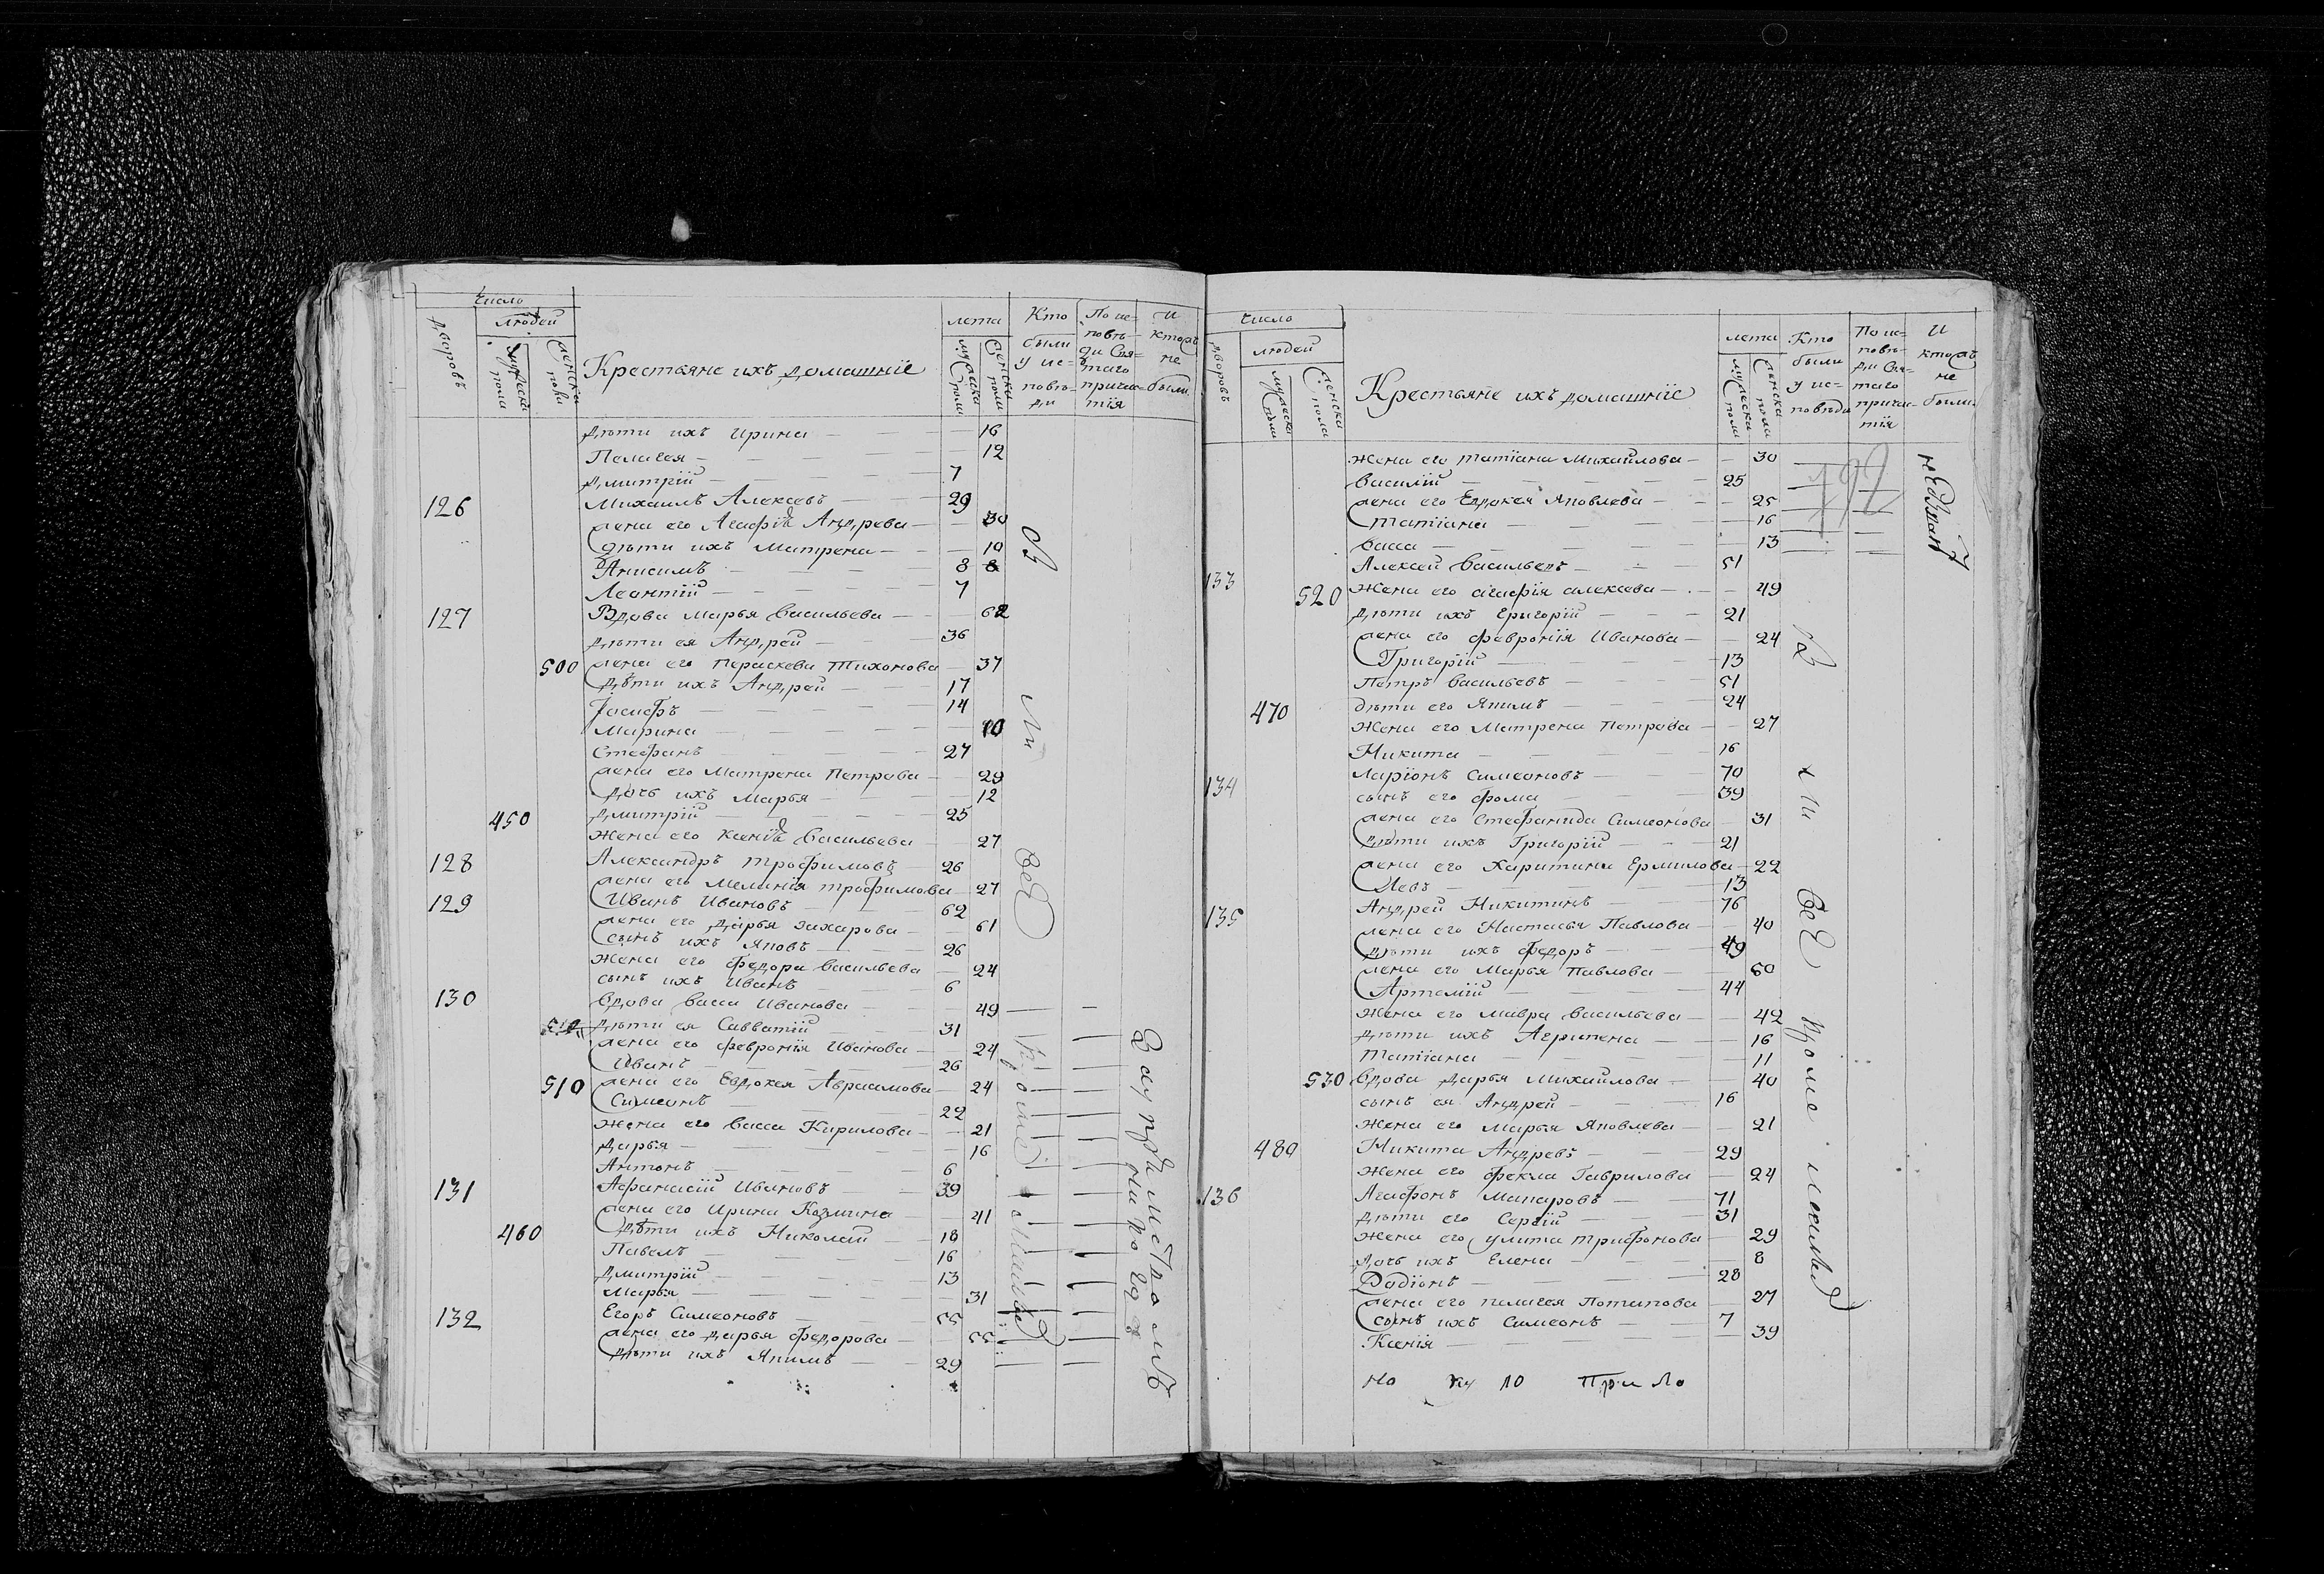 число
людей
дворовъ
мужеска пола
женска пола
Крестьяне ихъ домашніе
лета
мужеска пола
женска пола
Кто были у исповѣди
По исповѣди Святаго причастія
И которые не были
Дѣти ихъ Ирина — 16
Пелагея — 12
Дмитрій — 7
126 Михаилъ Алексевъ — 29
жена его Агафія Андрева — 30
Дѣти ихъ Матрена — 10
Анисимъ — 8
Леонтій — 7
127 Вдова Марья Васильева — 62
Дѣти ея Андрей — 36
500 жена его Параскева Тихонова — 37
Дѣти ихъ Андрей — 17
Іосифъ — 14
Марина — 10
Стефанъ — 27
жена его Матрена Петрова — 29
Дочь ихъ Марья — 12
450 Дмитрій — 25
Жена его Ксенія Васильева — 27
128 Александръ Трофимовъ — 26
жена его Меланія Трофимова — 27
129 Иванъ Ивановъ — 62
жена его Дарья Захарова — 61
сынъ ихъ Яковъ — 26
Жена его Федора Васильева — 24
сынъ ихъ Иванъ — 6
130 Вдова Васса Иванова — 49
Дѣти ея Савватій — 31
жена его Февронія Иванова — 24
Иванъ — 26
510 жена его Евдокея Авраамова — 24
Симеонъ — 22
Жена его Васса Кирилова — 21
Дарья — 16
Антонъ — 6
131 Афанасій Ивановъ — 39
жена его Ирина Козмина — 41
460 Дѣти ихъ Николай — 18
Павелъ — 16
Дмитрій — 13
Марья — 31
132 Егоръ Симеоновъ — 55
жена его Дарья Федорова — 55
Дѣти ихъ Якимъ — 29
число
людей
дворовъ
мужеска пола
женска пола
Крестьяне ихъ домашніе
лета
мужеска пола
женска пола
Кто были у исповѣди
По исповѣди Святаго причастія
И которые не были
Жена его Татіана Михайлова — 30
Василій — 25
жена его Евдокея Яковлева — 25
Татіана — 16
Васса — 13
133 Алексей Васильевъ — 51
520 Жена его Агафія Алексева — 49
Дѣти ихъ Григорій — 21
жена его Февронія Иванова — 24
Григорій — 13
Петръ Васильевъ — 51
470 Дѣти его Якимъ — 24
Жена его Матрена Петрова — 27
Никита — 16
134 Ларіонъ Симеоновъ — 70
сынъ его Фома — 39
жена его Стефанида Симеонова — 31
Дѣти ихъ Григорій — 21
жена его Харитина Ермилова — 22
Левъ — 13
135 Андрей Никитинъ — 76
жена его Настасья Павлова — 40
Дѣти ихъ Федоръ — 49
жена его Марья Павлова — 50
Артемій — 44
Жена его Мавра Васильева — 42
Дѣти ихъ Агрипена — 16
Татіана — 11
530 Вдова Дарья Михайлова — 40
сынъ ея Андрей — 16
Жена его Марья Яковлева — 21
480 Никита Андревъ — 29
Жена его Фекла Гаврилова — 24
136 Агафонъ Макаровъ — 71
Дѣти его Сергій — 31
Жена его Улита Трифонова — 29
Дочь ихъ Елена — 8
Родіонъ — 28
жена его Пелагея Потапова — 27
сынъ ихъ Симеонъ — 7
Ксенія — 39